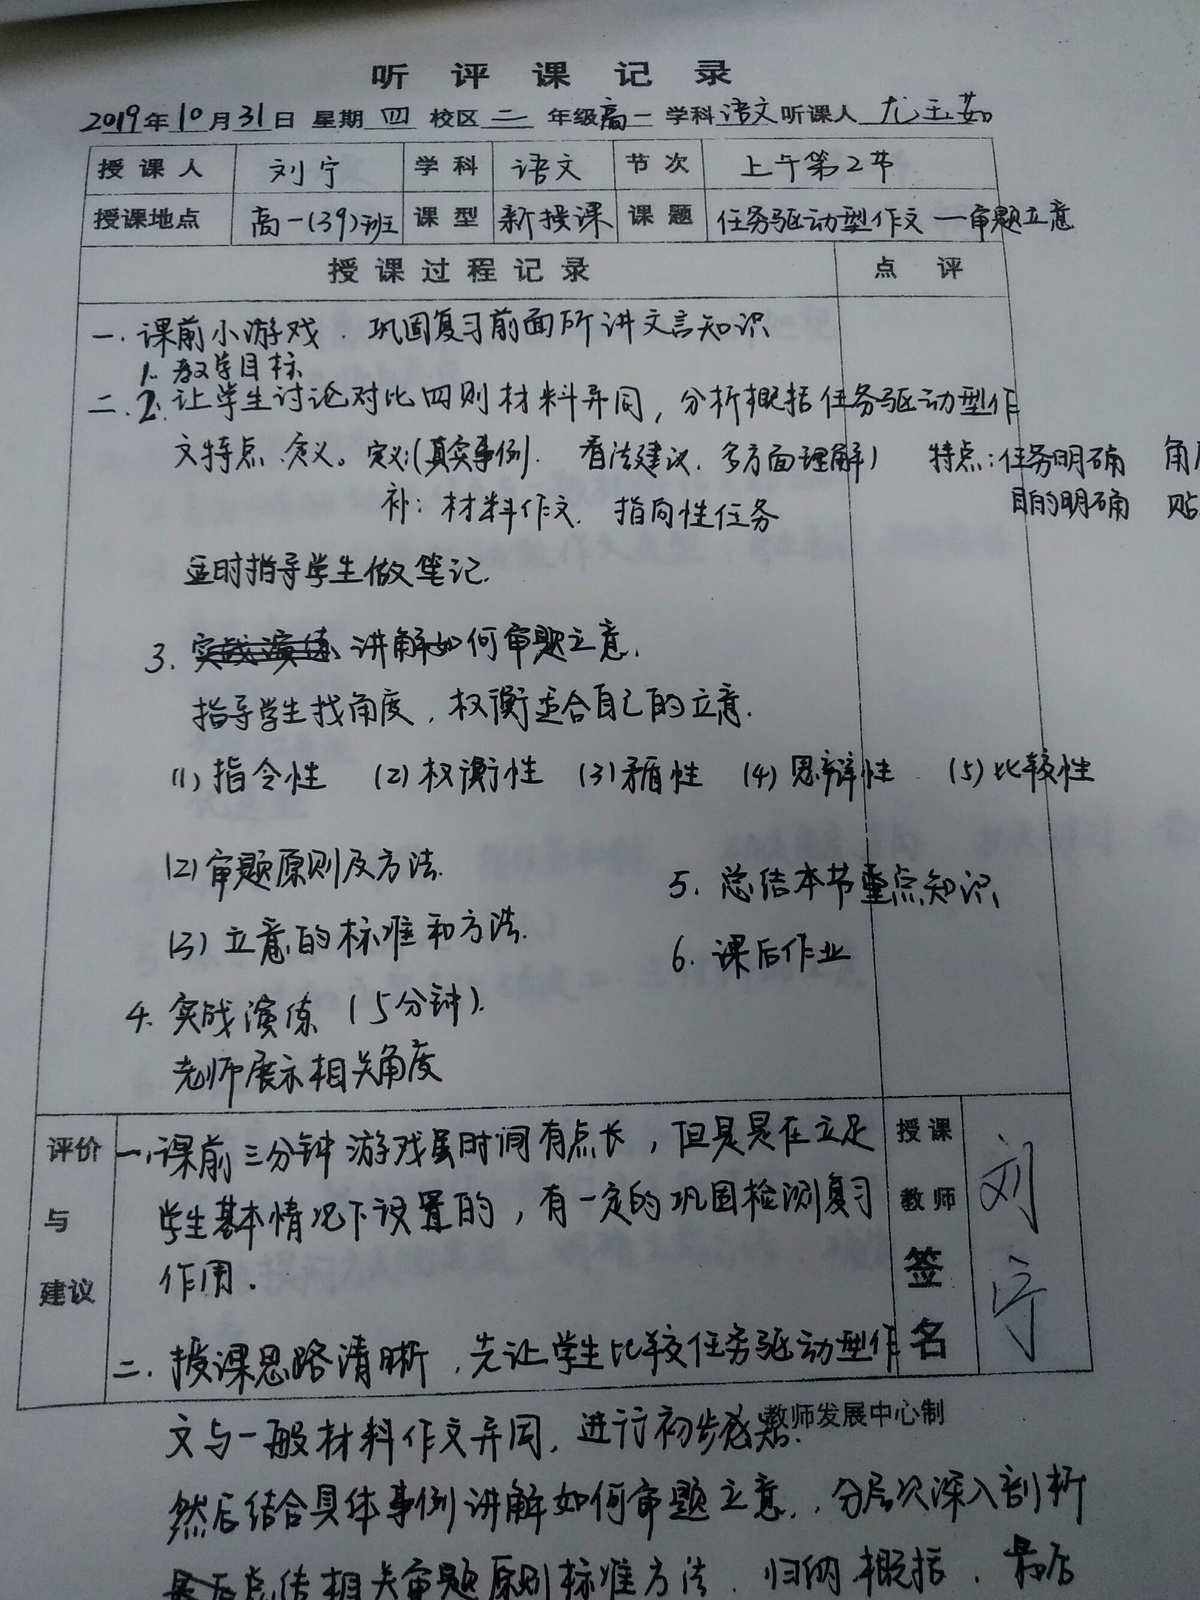 听评课记录
2019年10月31日 星期四 校区二 年级高一 学科语文 听课人 尤玉茹
授课人 刘宁 学科 语文 节次 上午第2节
授课地点 高一(39)班 课型 新授课 课题 任务驱动型作文—审题立意
授课过程记录 点评
一.课前小游戏.巩固复习前面所讲文言知识
1.教学目标
二.2.让学生讨论对比四则材料异同,分析概括任务驱动型作
文特点.含义。定义:(真实事例).看法建议.多方面理解) 特点:任务明确 角
补:材料作文.指向性任务 目的明确 贴
适时指导学生做笔记.
3. 讲解如何审题立意.
指导学生找角度,权衡适合自己的立意.
(1)指令性 (2)权衡性 (3)矛盾性 (4)思辩性 (5)比较性
(2)审题原则及方法.
5.总结本节重点知识
(3)立意的标准和方法.
6.课后作业
4.实战演练(5分钟).
老师展示相关角度
评价与建议
一.课前三分钟游戏虽时间有点长,但是是在立足
学生基本情况下设置的,有一定的巩固检测复习
作用.
二.授课思路清晰,先让学生比较任务驱动型作
授课教师签名 刘宁
教师发展中心制
文与一般材料作文异同,进行初步感知.
然后结合具体事例讲解如何审题立意.,分层次深入剖析
相关审题原则标准方法.归纳概括.最后